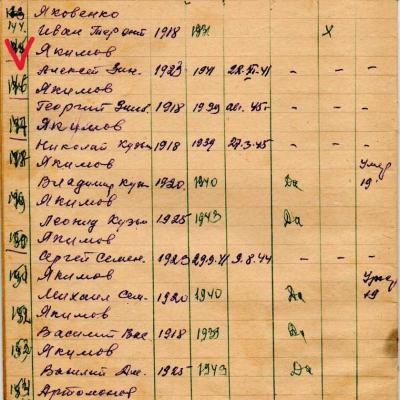 Яковенко
Иван Терент 1918 X
Якимов
Алексей Зин. 1923 1941 28.VI.41 - - -
146 Якимов
Георгий Зинов. 1918 1939 авг. 45 - - -
147 Якимов
Николай Кузьм 1918 1939 27.3.45 - - -
148 Якимов Умер
Владимир Кузь 1920 1940 Да 19
149 Якимов
Леонид Кузьм 1925 1943 Да
Якимов
Сергей Семен. 1923 9.8.44 - - -
Якимов Умер
Михаил Сем. 1920 1940 Да 19
Якимов
Василий Вас 1918 1939 Да
Якимов
Василий 1925 1943 Да
Артомонов